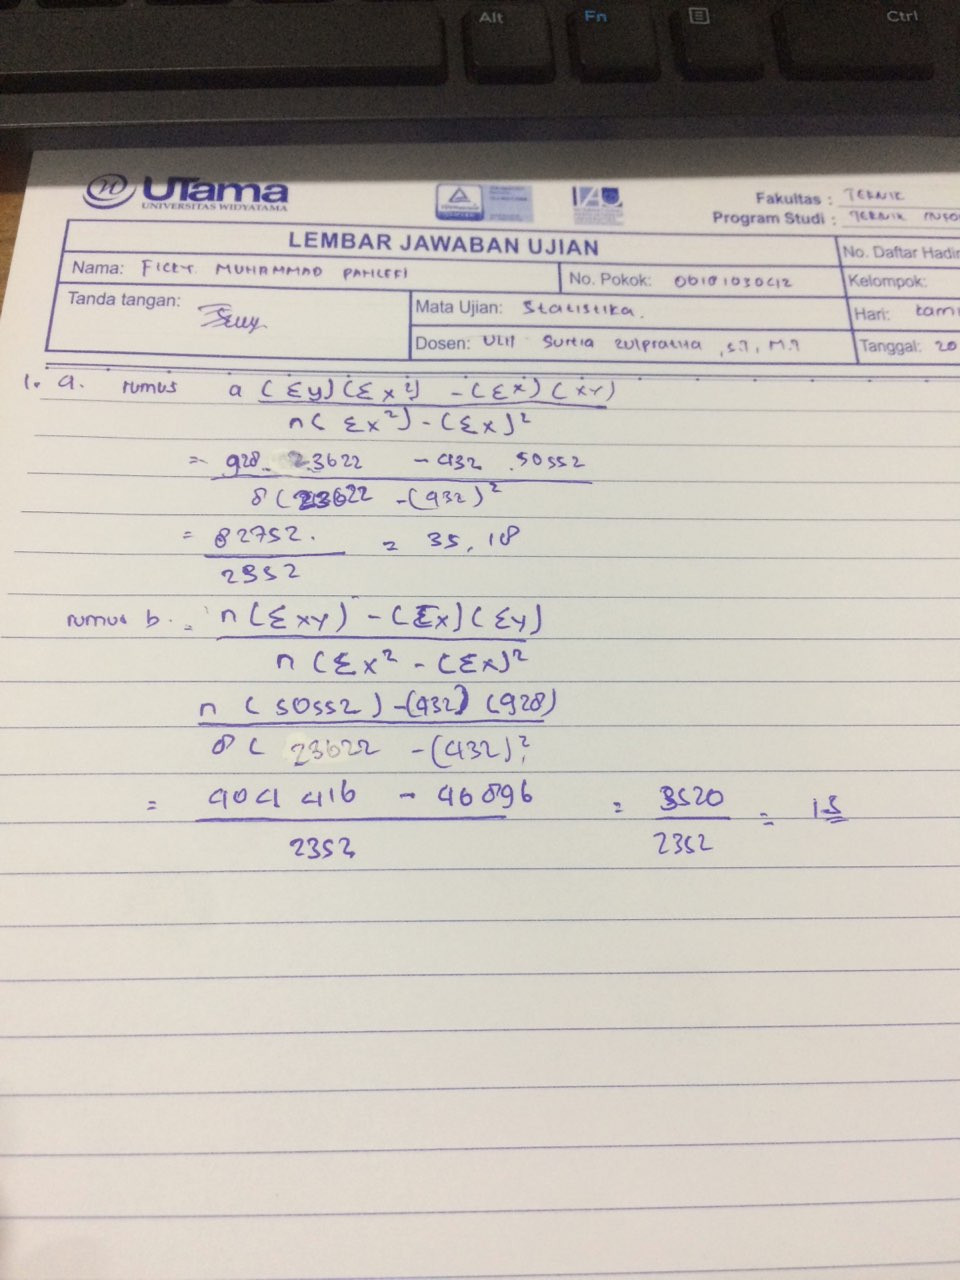 Alt Fn Ctrl
UTama
UNIVERSITAS WIDYATAMA
Fakultas : TEKNIK
Program Studi : TEKNIK
LEMBAR JAWABAN UJIAN
No. Daftar Hadir
Nama: FICKY MUHAMMAD PAHLEFI
No. Pokok:
Kelompok:
Tanda tangan:
Mata Ujian: Statistika.
Hari: kami
Dosen: Ulit , S.T, M.T
Tanggal: 20
1. a. rumus a (Σy)(Σx²) - (Σx)(xy)
n(Σx²) - (Σx)²
= 928. 23622 - 432 .50552
8 (23622 - (432)²
= 82752. = 35,18
2352
rumus b. = n(Σxy) - (Σx)(Σy)
n(Σx² - (Σx)²
n (50552) - (432) (928)
8 ( 23622 - (432)²
= 404 416 - 40 0896 = 3520 = 1.5
2352 2352